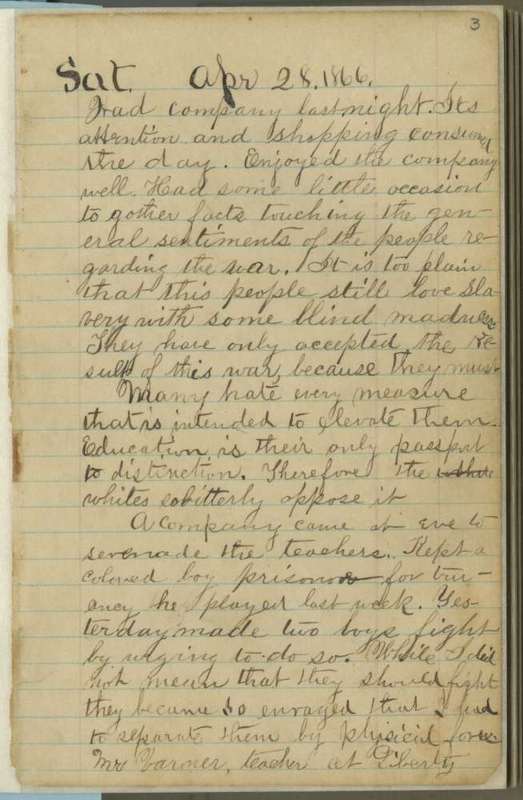 3
Sat. Apr 28, 1866.
Had company last night. Its
attention and shopping consumed
the day. Enjoyed the company
well. Had some little occasion
to gather facts touching the gen-
eral sentiments of the people re-
garding the war. It is too plain
that this people still love Sla-
very with some blind madness
They have only accepted the Re-
sult of this war, because they must.
Many hate every measure
that is intended to elevate them.
Education is their only passport
to distinction. Therefore the
whites so bitterly oppose it
A company came at eve to
serenade the teachers. Kept a
colored boy prisoner for tru-
ency he played last week. Yes-
terday made two boys fight
by urging to do so. While I did
not mean that they should fight
they became so enraged that I had
to separate them by physical force.
Mr Varner, teacher at Liberty